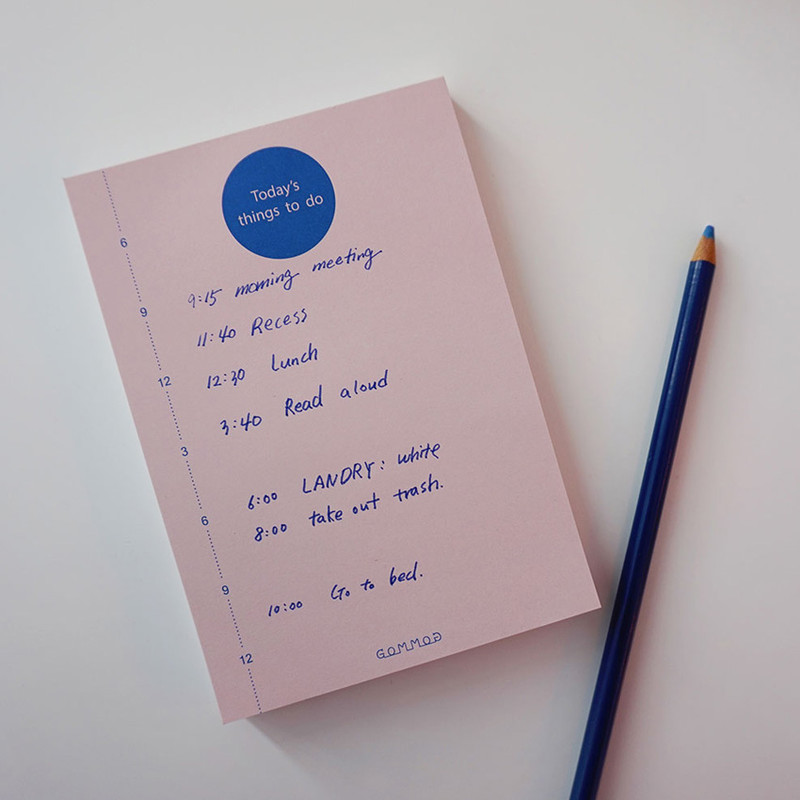 Today's
things to do
6
9:15 morning meeting
9
11:40 Recess
12:30 Lunch
12
3:40 Read aloud
3
6:00 LANDRY: white
8:00 take out trash.
6
10:00 Go to bed.
9
12
GOMMOD